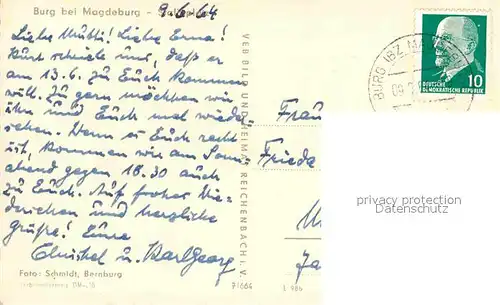 Burg bei Magdeburg -
9.6.64
Liebe Mutti! Liebe Erna!
Kurt schrieb uns, daß er
am 13.6. zu Euch kommen
will. Zu gern möchten wir
ihn und Euch mal wieder-
sehen. Wenn es Euch recht
ist, kommen wir am Sonn-
abend gegen 18.30 auch
zu Euch. Auf frohes Wie-
dersehen und herzliche
grüße! Eure
Christel u. Karlgeorg
Foto: Schmidt, Bernburg
VEB BILD UND HEIMAT REICHENBACH i. V.
Frau
Frieda
BURG (BZ. MAGDEBURG)
10
DEUTSCHE
DEMOKRATISCHE REPUBLIK
privacy protection
Datenschutz